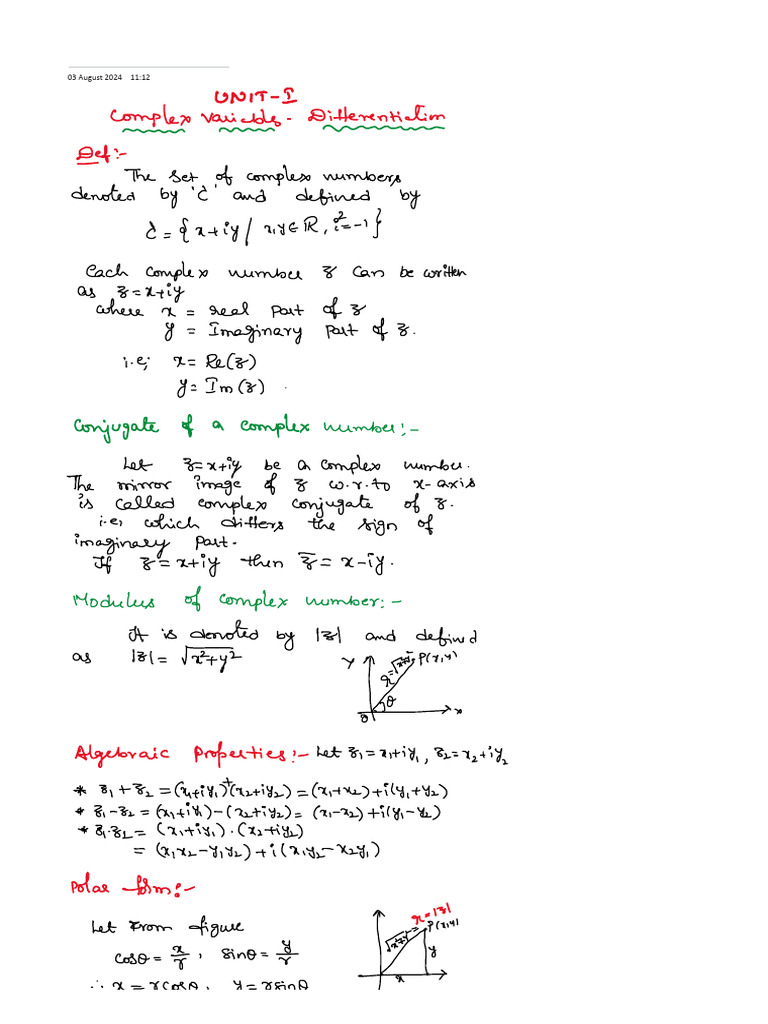 03 August 2024 11:12
UNIT-I
Complex Variables - Differentiation
Def:-
The set of complex numbers
denoted by 'ℂ' and defined by
ℂ = { x+iy / x,y ∈ ℝ, i²=-1 }
Each complex number z can be written
as z = x+iy
where x = real part of z
y = Imaginary part of z.
i.e; x = Re(z)
y = Im(z).
Conjugate of a complex number:-
Let z = x+iy be a complex number.
The mirror image of z w.r.to x-axis
is called complex conjugate of z.
i.e, which differs the sign of
imaginary part.
If z = x+iy then z̅ = x-iy.
Modulus of complex number:-
It is denoted by |z| and defined
as |z| = √x²+y²
Y r=√x²+y² P(x,y)
θ
0 x
Algebraic Properties:- Let z₁ = x₁+iy₁, z₂ = x₂+iy₂
* z₁ + z₂ = (x₁+iy₁)+(x₂+iy₂) = (x₁+x₂)+i(y₁+y₂)
* z₁ - z₂ = (x₁+iy₁)-(x₂+iy₂) = (x₁-x₂)+i(y₁-y₂)
* z₁·z₂ = (x₁+iy₁)·(x₂+iy₂)
= (x₁x₂-y₁y₂)+i(x₁y₂-x₂y₁)
Polar form:-
r=|z|
√x²+y² = P(x,y)
y
x
Let from figure
cosθ = x/r, sinθ = y/r
∴ x = rcosθ, y = rsinθ